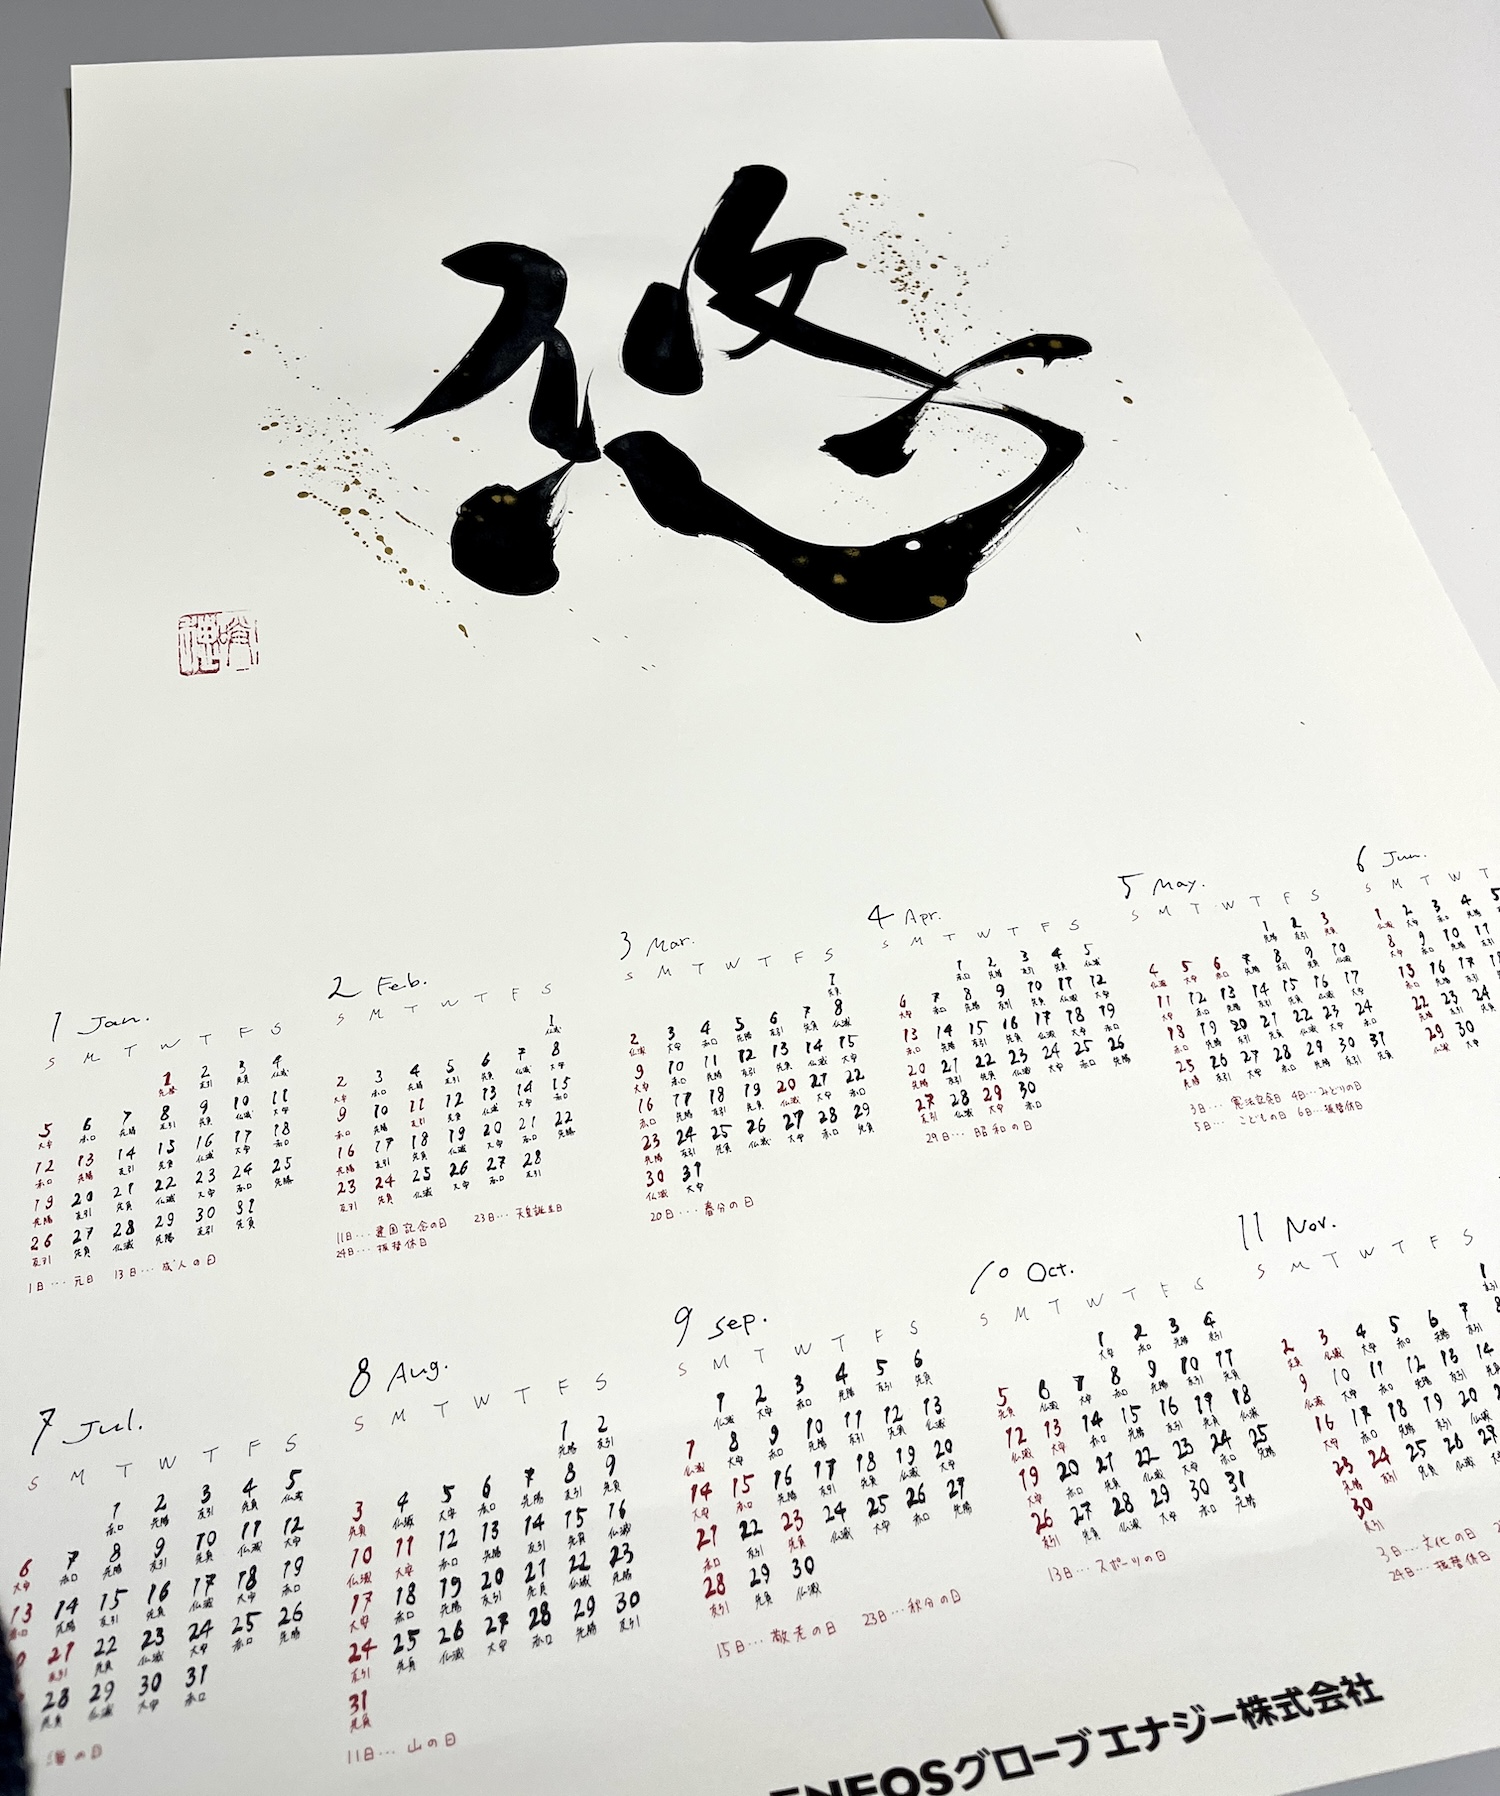 悠
1 Jan.
S M T W T F S
1 2 3 4
先勝 友引 先負 仏滅
5 6 7 8 9 10 11
大安 赤口 先勝 友引 先負 仏滅 大安
12 13 14 15 16 17 18
赤口 先勝 友引 先負 仏滅 大安 赤口
19 20 21 22 23 24 25
先勝 友引 先負 仏滅 大安 赤口 先勝
26 27 28 29 30 31
友引 先負 仏滅 先勝 友引 先負
1日… 元日 13日… 成人の日
2 Feb.
S M T W T F S
1
仏滅
2 3 4 5 6 7 8
大安 赤口 先勝 友引 先負 仏滅 大安
9 10 11 12 13 14 15
赤口 先勝 友引 先負 仏滅 大安 赤口
16 17 18 19 20 21 22
先勝 友引 先負 仏滅 大安 赤口 先勝
23 24 25 26 27 28
友引 先負 仏滅 大安 赤口 友引
11日… 建国記念の日 23日… 天皇誕生日
24日… 振替休日
3 Mar.
S M T W T F S
1
先負
2 3 4 5 6 7 8
仏滅 大安 赤口 先勝 友引 先負 仏滅
9 10 11 12 13 14 15
大安 赤口 先勝 友引 先負 仏滅 大安
16 17 18 19 20 21 22
赤口 先勝 友引 先負 仏滅 大安 赤口
23 24 25 26 27 28 29
先勝 友引 先負 仏滅 大安 赤口 先負
30 31
仏滅 大安
20日… 春分の日
4 Apr.
S M T W T F S
1 2 3 4 5
赤口 先勝 友引 先負 仏滅
6 7 8 9 10 11 12
大安 赤口 先勝 友引 先負 仏滅 大安
13 14 15 16 17 18 19
赤口 先勝 友引 先負 仏滅 大安 赤口
20 21 22 23 24 25 26
先勝 友引 先負 仏滅 大安 赤口 先勝
27 28 29 30
友引 仏滅 大安 赤口
29日… 昭和の日
5 May.
S M T W T F S
1 2 3
先勝 友引 先負
4 5 6 7 8 9 10
仏滅 大安 赤口 先勝 友引 先負 仏滅
11 12 13 14 15 16 17
大安 赤口 先勝 友引 先負 仏滅 大安
18 19 20 21 22 23 24
赤口 先勝 友引 先負 仏滅 大安 赤口
25 26 27 28 29 30 31
先勝 友引 大安 赤口 先勝 友引 先負
3日… 憲法記念日 4日… みどりの日
5日… こどもの日 6日… 振替休日
6 Jun.
S M T W T
1 2 3 4 5
仏滅 大安 赤口 先勝
8 9 10 11
大安 赤口 先勝 友引
15 16 17 18
赤口 先勝 友引
22 23 24
先勝 友引 先負
29 30
仏滅 大安
7 Jul.
S M T W T F S
1 2 3 4 5
赤口 先勝 友引 先負 仏滅
6 7 8 9 10 11 12
大安 赤口 先勝 友引 先負 仏滅 大安
13 14 15 16 17 18 19
赤口 先勝 友引 先負 仏滅 大安 赤口
21 22 23 24 25 26
友引 先負 仏滅 大安 赤口 先勝
28 29 30 31
先負 仏滅 大安 赤口
海の日
8 Aug.
S M T W T F S
1 2
先勝 友引
3 4 5 6 7 8 9
先負 仏滅 大安 赤口 先勝 友引 先負
10 11 12 13 14 15 16
仏滅 大安 赤口 先勝 友引 先負 仏滅
17 18 19 20 21 22 23
大安 赤口 先勝 友引 先負 仏滅 先勝
24 25 26 27 28 29 30
友引 先負 仏滅 大安 赤口 先勝 友引
31
先負
11日… 山の日
9 Sep.
S M T W T F S
1 2 3 4 5 6
仏滅 大安 赤口 先勝 友引 先負
7 8 9 10 11 12 13
仏滅 大安 赤口 先勝 友引 先負 仏滅
14 15 16 17 18 19 20
大安 赤口 先勝 友引 先負 仏滅 大安
21 22 23 24 25 26 27
赤口 友引 先負 仏滅 大安 赤口 先勝
28 29 30
友引 先負 仏滅
15日… 敬老の日 23日… 秋分の日
10 Oct.
S M T W T F S
1 2 3 4
大安 赤口 先勝 友引
5 6 7 8 9 10 11
先負 仏滅 大安 赤口 先勝 友引 先負
12 13 14 15 16 17 18
仏滅 大安 赤口 先勝 友引 先負 仏滅
19 20 21 22 23 24 25
大安 赤口 先負 仏滅 大安 赤口 先勝
26 27 28 29 30 31
友引 先負 仏滅 大安 赤口 先勝
13日… スポーツの日
11 Nov.
S M T W T F S
1
友引
2 3 4 5 6 7 8
先負 仏滅 大安 赤口 先勝 友引
9 10 11 12 13 14
仏滅 大安 赤口 先勝 友引 先負
16 17 18 19 20
大安 赤口 先勝 友引 仏滅
23 24 25 26 27
先勝 友引 先負 仏滅
30
友引
3日… 文化の日
24日… 振替休日
ENEOSグローブエナジー株式会社